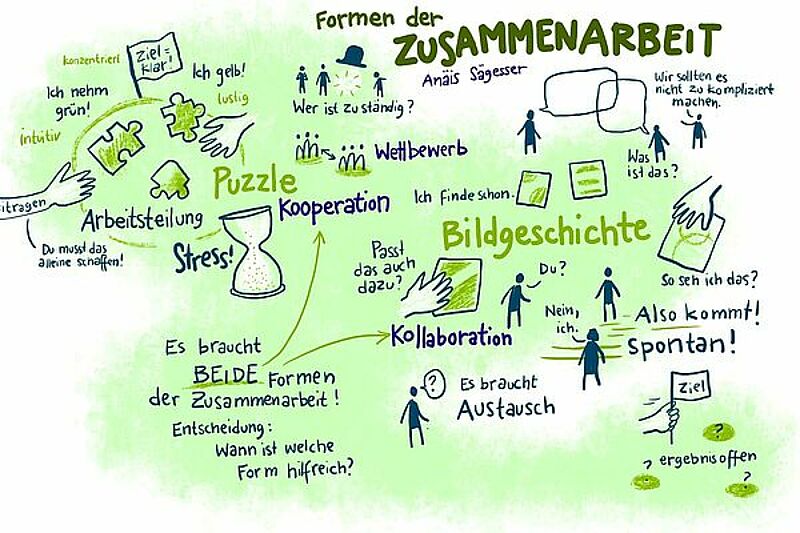 Formen der
ZUSAMMENARBEIT
Anäis Sägesser
konzentriert
Ziel =
klar!
Ich nehm
grün!
Ich gelb!
lustig
intuitiv
Puzzle
itragen
Arbeitsteilung
Du musst das
alleine schaffen!
Stress!
Wer ist zuständig?
Wettbewerb
Kooperation
Wir sollten es
nicht zu kompliziert
machen.
Was
ist das?
Ich finde schon.
Bildgeschichte
So seh ich das?
Passt
das auch
dazu?
Du?
Nein,
ich.
Also kommt!
spontan!
Kollaboration
Es braucht
BEIDE Formen
der Zusammenarbeit!
Entscheidung:
Wann ist welche
Form hilfreich?
?
Es braucht
Austausch
Ziel
?
ergebnisoffen
?
?